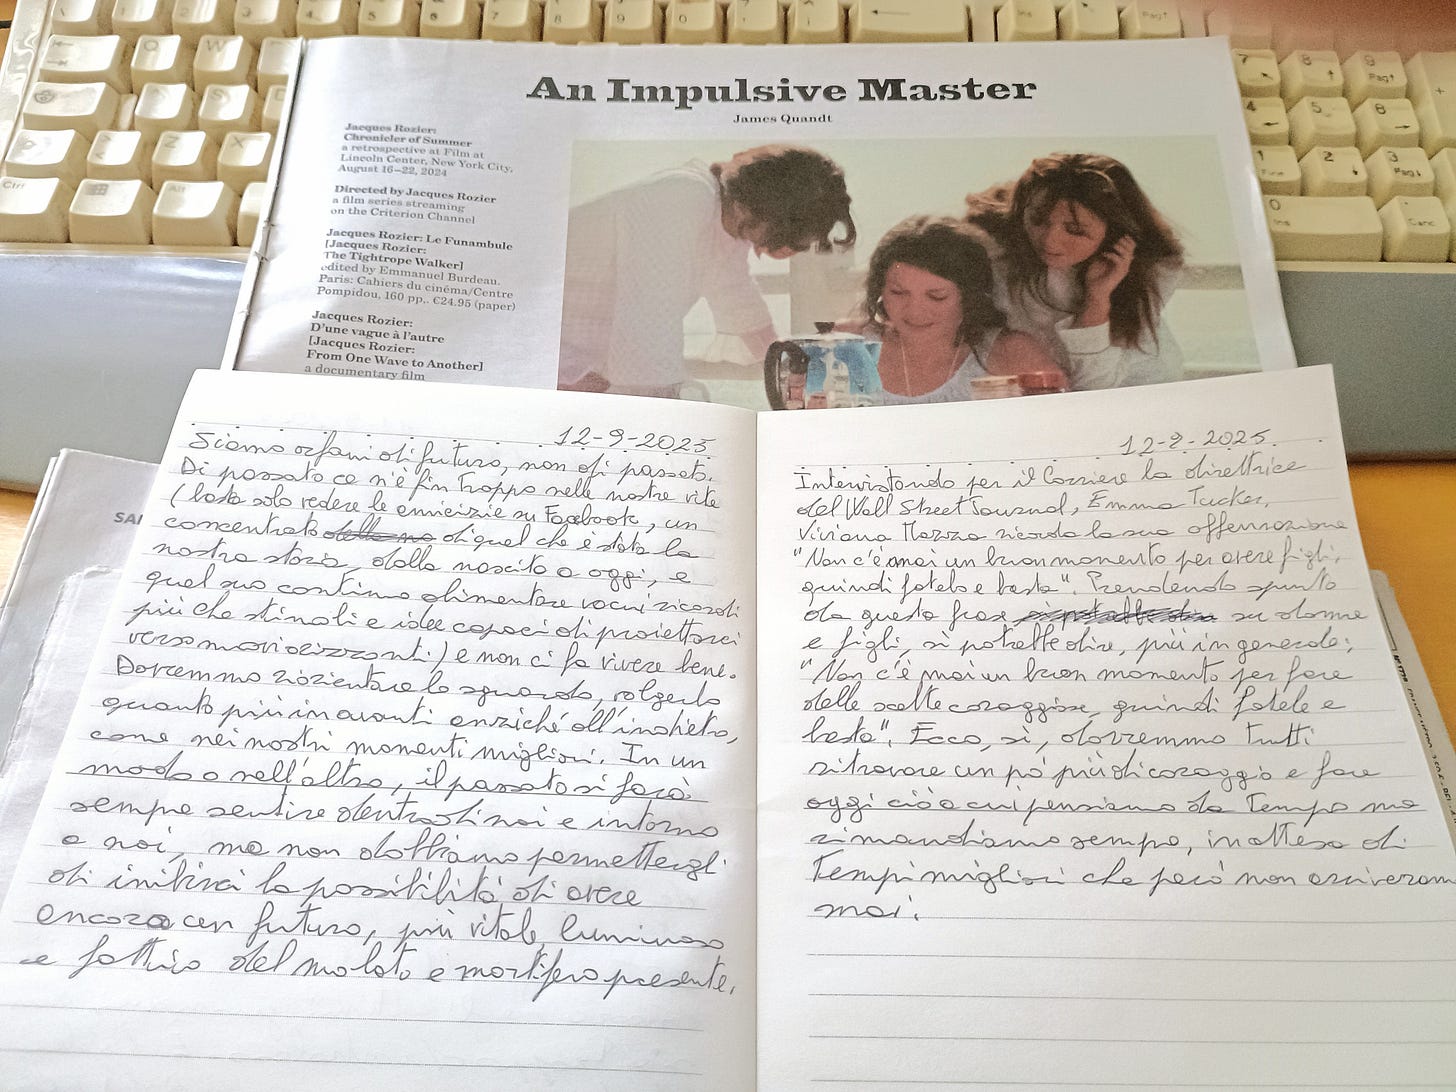 An Impulsive Master
James Quandt
Jacques Rozier:
Chronicler of Summer
a retrospective at Film at
Lincoln Center, New York City,
August 16–22, 2024
Directed by Jacques Rozier
a film series streaming
on the Criterion Channel
Jacques Rozier: Le Funambule
[Jacques Rozier:
The Tightrope Walker]
edited by Emmanuel Burdeau.
Paris: Cahiers du cinéma/Centre
Pompidou, 160 pp., €24.95 (paper)
Jacques Rozier:
D'une vague à l'autre
[Jacques Rozier:
From One Wave to Another]
a documentary film
12-9-2025
Siamo orfani di futuro, non di passato.
Di passato ce n'è fin troppo nelle nostre vite
(basta solo vedere le amicizie su Facebook, un
concentrato di quel che è stata la
nostra storia, dalla nascita a oggi, e
quel suo continuo alimentare vacui ricordi
più che stimoli e idee capaci di proiettarci
verso nuovi orizzonti) e non ci fa vivere bene.
Dovremmo riorientare lo sguardo, volgerlo
quanto più in avanti anziché all'indietro,
come nei nostri momenti migliori. In un
modo o nell'altro, il passato si farà
sempre sentire dentro di noi e intorno
a noi, ma non dobbiamo permettergli
di inibirci la possibilità di avere
ancora un futuro, più vitale, luminoso
e fattivo del malato e mortifero presente.
12-9-2025
Intervistando per il Corriere la direttrice
del Wall Street Journal, Emma Tucker,
Viviana Mazza ricorda la sua affermazione
"Non c'è mai un buon momento per avere figli,
quindi fatelo e basta". Prendendo spunto
da questa frase su donne
e figli, si potrebbe dire, più in generale:
"Non c'è mai un buon momento per fare
delle scelte coraggiose, quindi fatele e
basta". Ecco, sì, dovremmo tutti
ritrovare un po' più di coraggio e fare
oggi ciò a cui pensiamo da tempo ma
rimandiamo sempre, in attesa di
tempi migliori che però non arriveranno
mai.